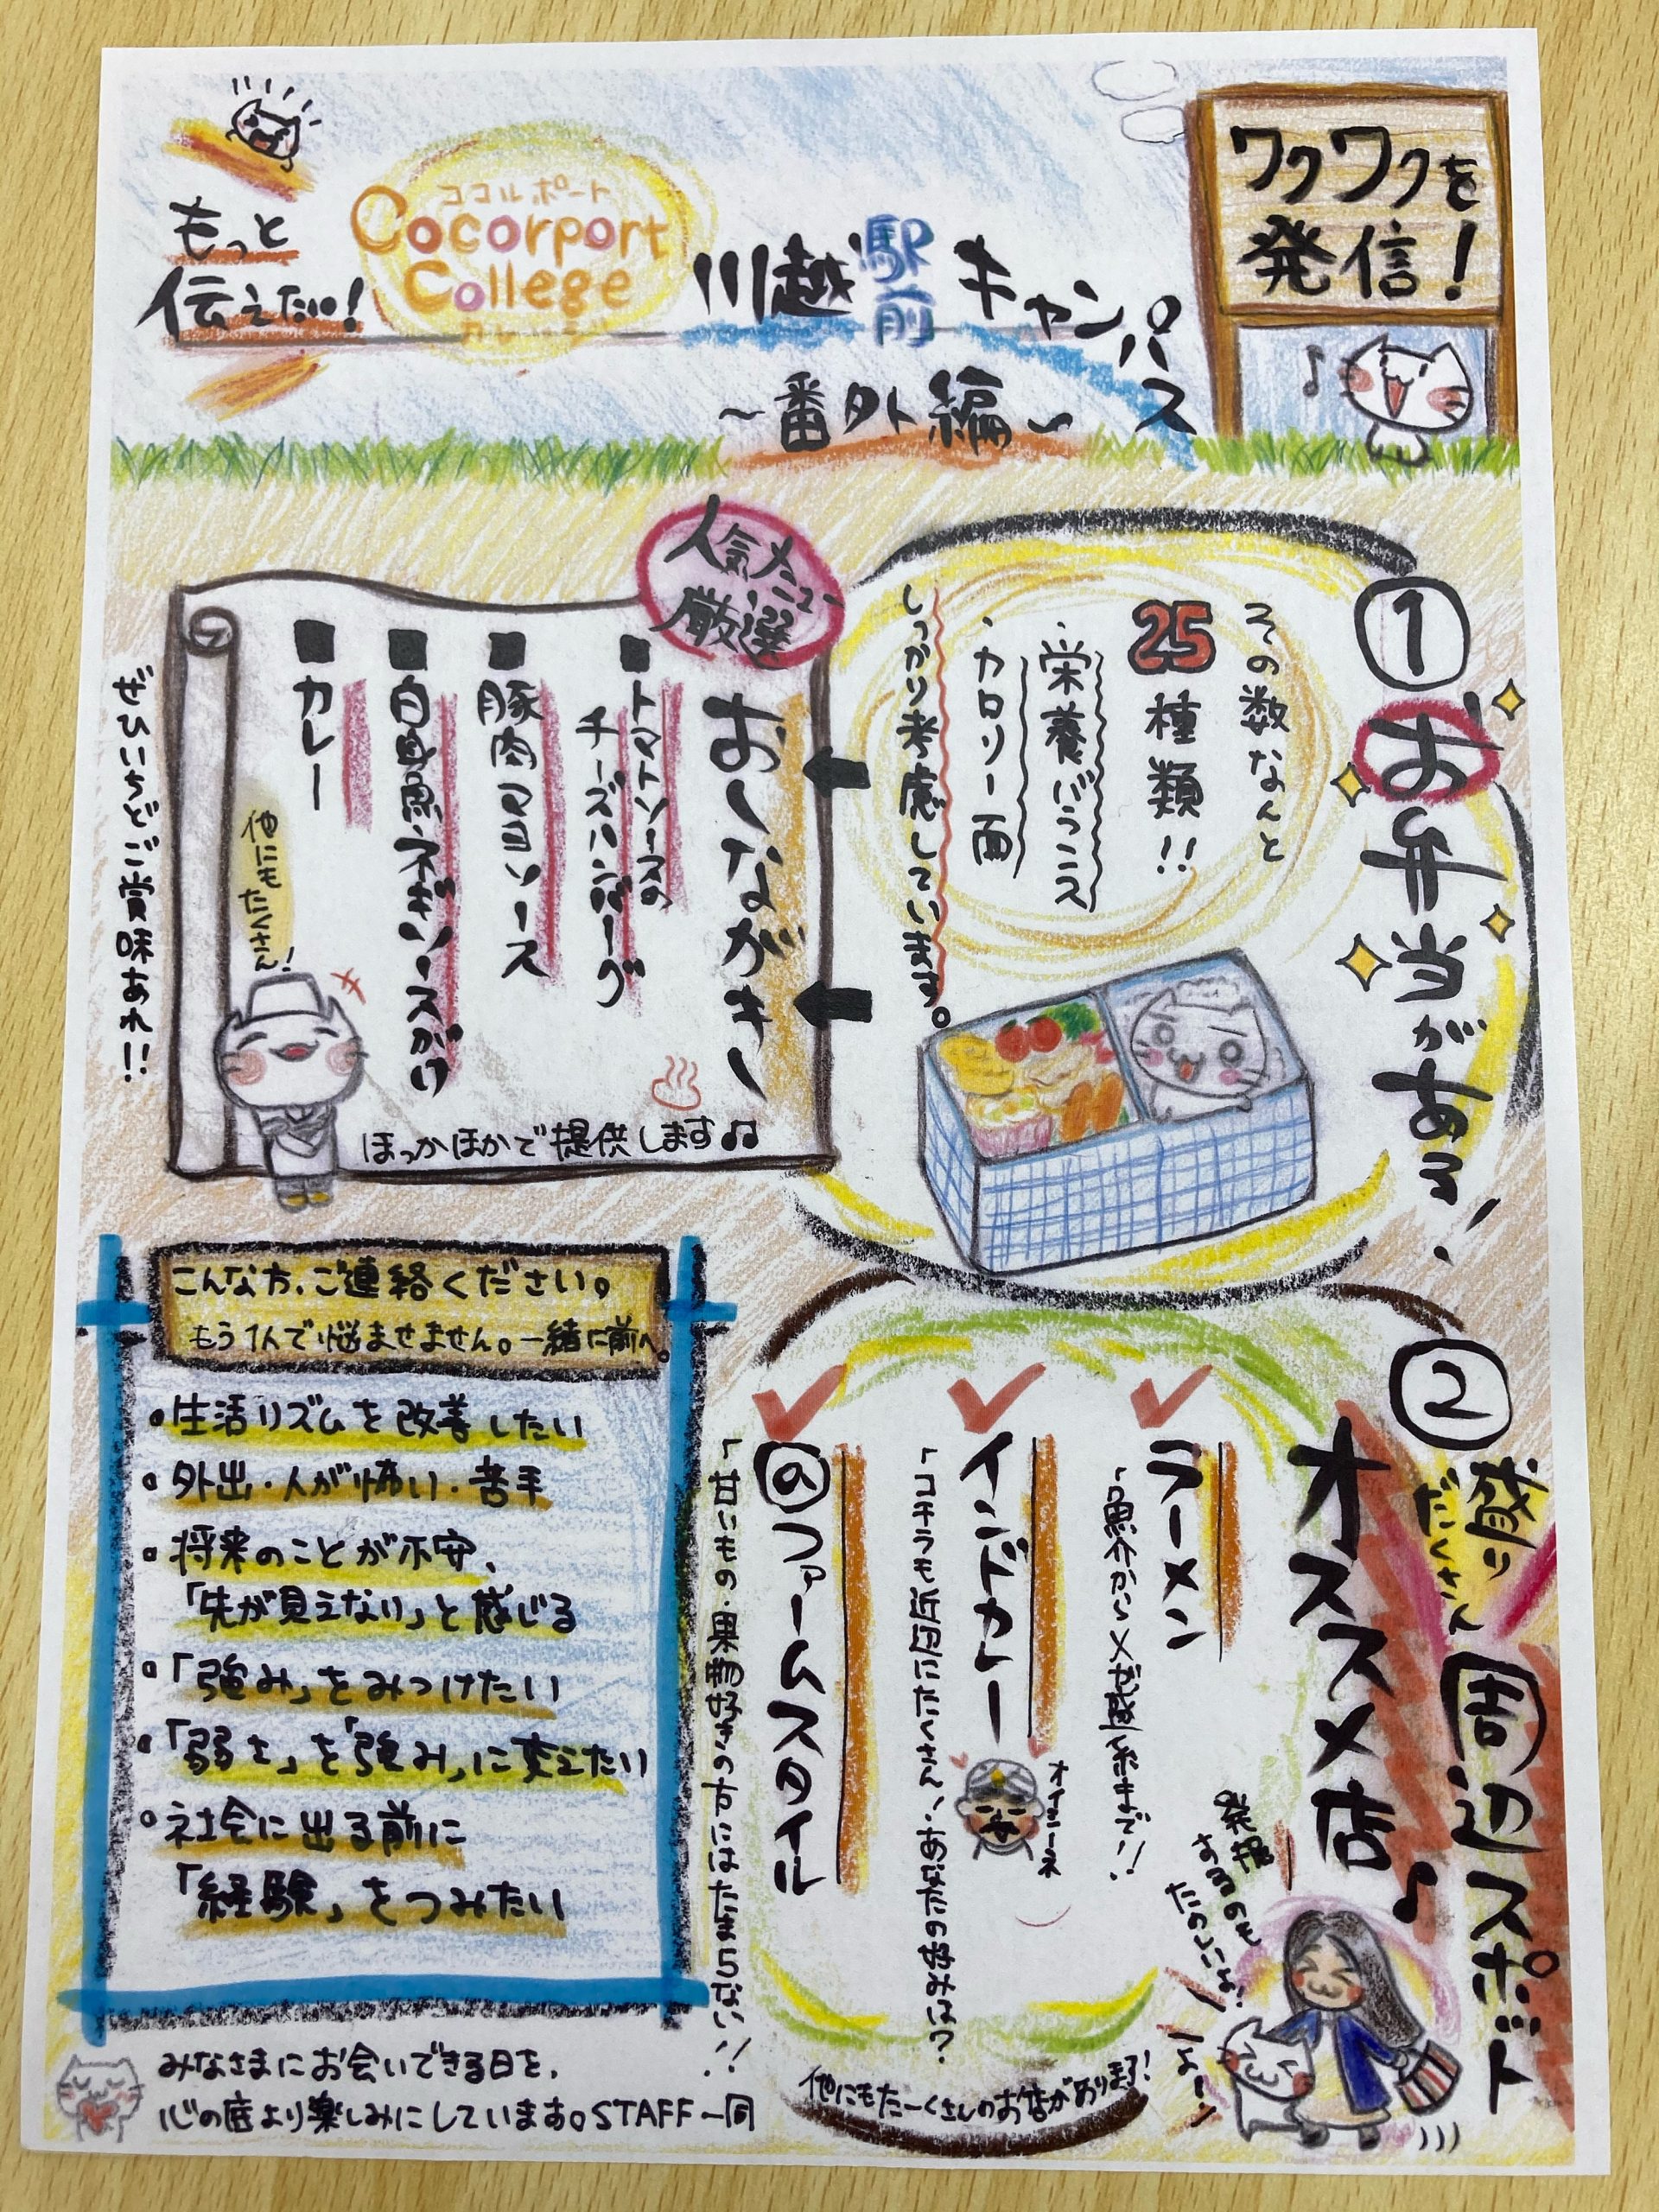 もっと
伝えたい!
ココルポート
Cocorport
College
カレッジ
川越駅前キャンパス
〜番外編〜
ワクワクを
発信!
①お弁当がある!
その数なんと
25種類!!
・栄養バランス
・カロリー面
しっかり考慮しています。
人気メニュー
厳選
おしながき
■トマトソースの
チーズハンバーグ
■豚肉マヨソース
■白身魚ネギソースがけ
■カレー
他にもたくさん!
ほっかほかで提供します♫
ぜひいちどご賞味あれ!!
②盛りだくさん周辺スポット
オススメ店♪
発掘
するのも
たのしいよ!
ラーメン
「魚介から〆ガ感系まで!!
インドカレー
「コチラも近辺にたくさん、あなたの好みは?
オイシーネ
のファームスタイル
「甘いもの・果物好きの方にはたまらない!!
他にもたーくさんのお店があります!
こんな方、ご連絡ください。
もう1人で悩ませません。一緒に前へ。
・生活リズムを改善したい
・外出・人が怖い・苦手
・将来のことが不安、
「先が見えない」と感じる
・「強み」をみつけたい
・「弱さ」を「強み」に変えたい
・社会に出る前に
「経験」をつみたい
みなさまにお会いできる日を、
心の底より楽しみにしています。STAFF一同